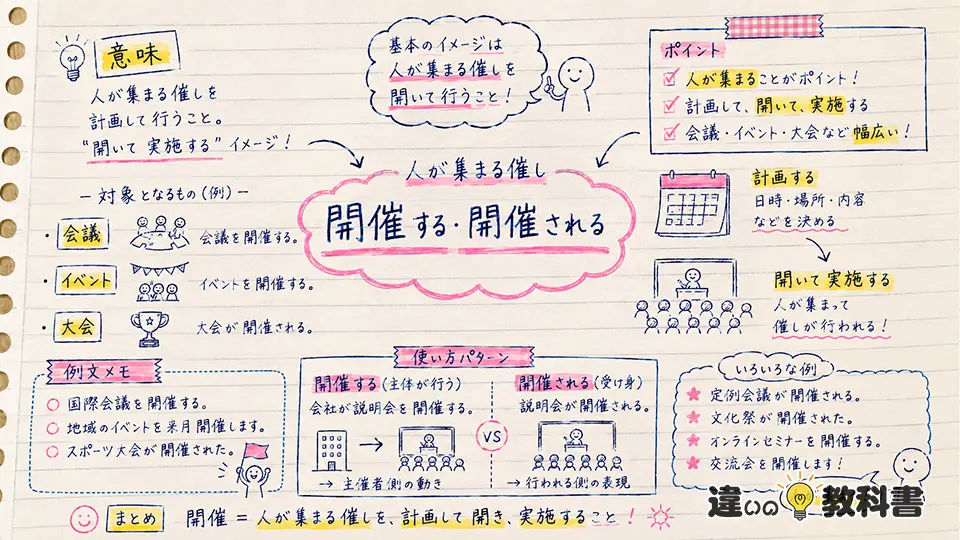 意味
人が集まる催しを
計画して行うこと。
"開いて実施する"イメージ!
基本のイメージは
人が集まる催しを
開いて行うこと!
ポイント
人が集まることがポイント!
計画して、開いて、実施する
会議・イベント・大会など幅広い!
人が集まる催し
開催する・開催される
ー対象となるもの(例)ー
・会議
会議を開催する。
・イベント
イベントを開催する。
・大会
大会が開催される。
計画する
日時・場所・内容
などを決める
開いて実施する
人が集まって
催しが行われる!
例文メモ
国際会議を開催する。
地域のイベントを来月開催します。
スポーツ大会が開催された。
使い方パターン
開催する(主体が行う)
会社が説明会を開催する。
→主催者側の動き
VS
開催される(受け身)
説明会が開催される。
→行われる側の表現
いろいろな例
定例会議が開催される。
文化祭が開催された。
オンラインセミナーを開催する。
交流会を開催します!
まとめ 開催=人が集まる催しを、計画して開き、実施すること!
違いの教科書